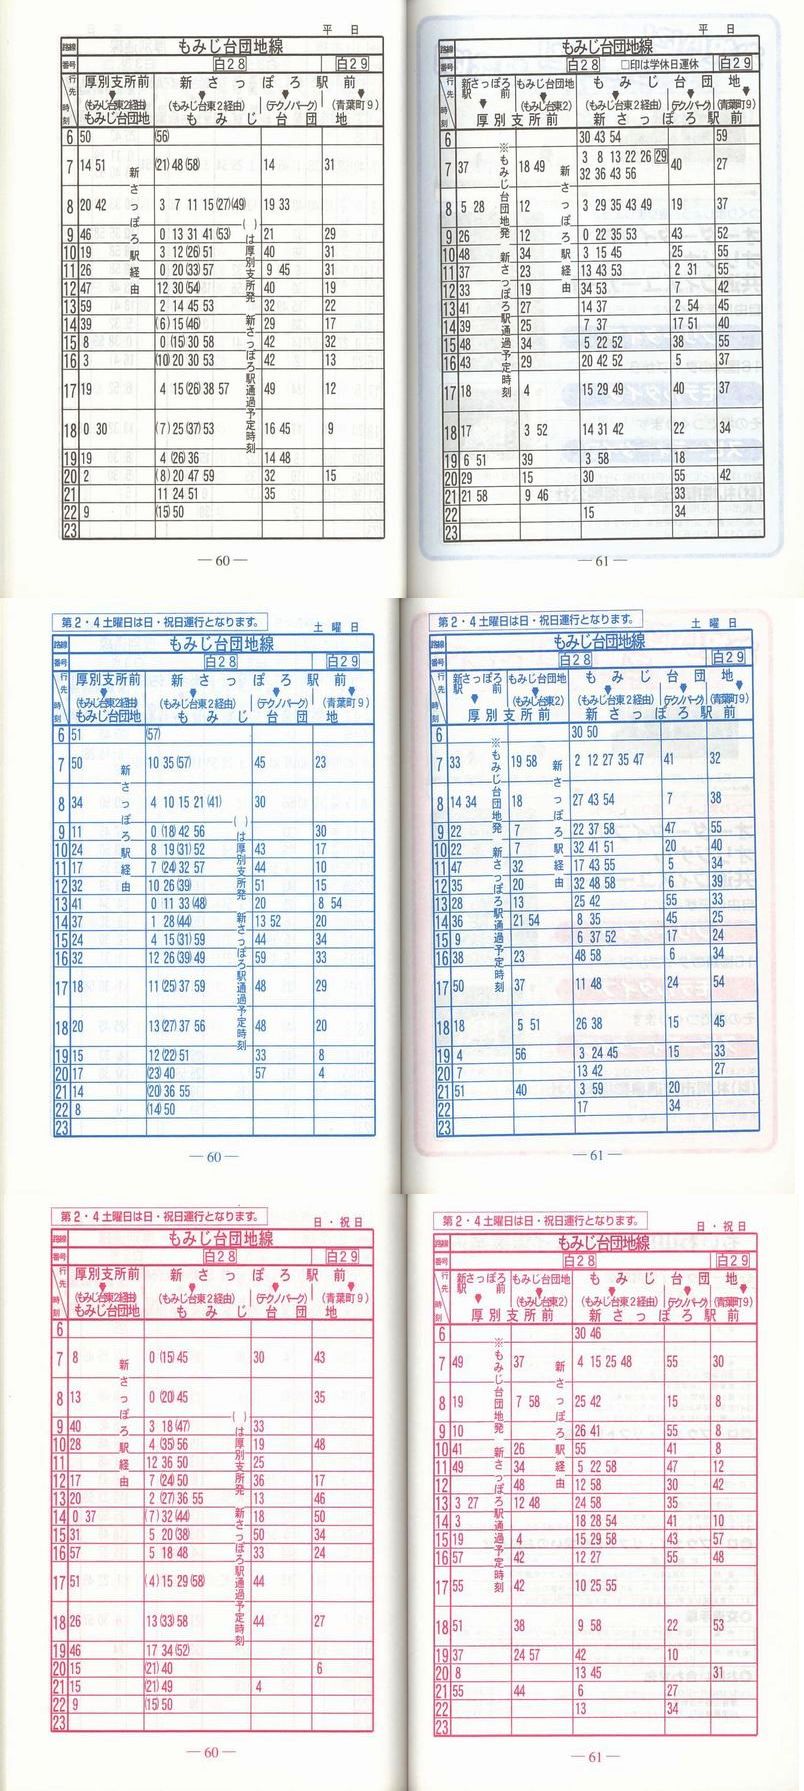 平 日
路線 もみじ台団地線
番号 白28 白29
行先 厚別支所前 新さっぽろ駅前
(もみじ台東2経由) (もみじ台東2経由) (テクノパーク) (青葉町9)
時刻 もみじ台団地 もみじ台団地
新さっぽろ駅経由
( )は厚別支所発 新さっぽろ駅通過予定時刻
6 50 (56)
7 14 51 (21) 48 (58) 14 31
8 20 42 3 7 11 15 (27) (49) 19 33
9 46 0 13 31 41 (53) 21 29
10 19 3 12 (26) 51 40 31
11 26 0 20 (33) 57 9 45 31
12 47 12 30 (54) 40 19
13 59 2 14 45 53 32 22
14 39 (6) 15 (46) 29 17
15 8 0 (15) 30 58 42 32
16 3 (10) 20 30 53 42 13
17 19 4 15 (26) 38 57 49 12
18 0 30 (7) 25 (37) 53 16 45 9
19 19 4 (26) 36 14 48
20 2 (8) 20 47 59 32 15
21 11 24 51 35
22 9 (15) 50
23
― 60 ―
平 日
路線 もみじ台団地線
番号 白28 □印は学休日運休 白29
行先 新さっぽろ駅前 もみじ台団地 もみじ台団地
(もみじ台東2) (もみじ台東2経由) (テクノパーク) (青葉町9)
時刻 厚別支所前 新さっぽろ駅前
※もみじ台団地発 新さっぽろ駅通過予定時刻
新さっぽろ駅経由
6 30 43 54 59
7 37 18 49 3 8 13 22 26 29 40 27
32 36 43 56
8 5 28 12 3 29 35 43 49 19 37
9 26 12 0 22 35 53 43 52
10 48 34 3 15 45 25 55
11 37 23 13 43 53 2 31 55
12 33 19 34 53 7 42
13 41 27 14 37 2 54 45
14 39 25 7 37 17 51 40
15 48 34 5 22 52 38 55
16 43 29 20 42 52 5 37
17 18 4 15 29 49 40 37
18 17 3 52 14 31 42 22 34
19 6 51 39 3 58 18
20 29 15 30 55 42
21 21 58 9 46 33
22 15 34
23
― 61 ―
第2・4土曜日は日・祝日運行となります。
土 曜 日
路線 もみじ台団地線
番号 白28 白29
行先 厚別支所前 新さっぽろ駅前
(もみじ台東2経由) (もみじ台東2経由) (テクノパーク) (青葉町9)
時刻 もみじ台団地 もみじ台団地
新さっぽろ駅経由
( )は厚別支所発 新さっぽろ駅通過予定時刻
6 51 (57)
7 50 10 35 (57) 45 23
8 34 4 10 15 21 (41) 30
9 11 0 (18) 42 56 30
10 24 8 19 (31) 52 43 17
11 17 7 (24) 32 57 44 10
12 32 10 26 (39) 51 15
13 41 0 11 33 (48) 20 8 54
14 37 1 28 (44) 13 52 20
15 24 4 15 (31) 59 44 34
16 32 12 26 (39) 49 59 33
17 18 11 (25) 37 59 48 29
18 20 13 (27) 37 56 48 20
19 15 12 (22) 51 33 8
20 17 (23) 40 57 4
21 14 (20) 36 55
22 8 (14) 50
23
― 60 ―
第2・4土曜日は日・祝日運行となります。
土 曜 日
路線 もみじ台団地線
番号 白28 白29
行先 新さっぽろ駅前 もみじ台団地 もみじ台団地
(もみじ台東2) (もみじ台東2経由) (テクノパーク) (青葉町9)
時刻 厚別支所前 新さっぽろ駅前
※もみじ台団地発 新さっぽろ駅通過予定時刻
新さっぽろ駅経由
6 30 50
7 33 19 58 2 12 27 35 47 41 32
8 14 34 18 27 43 54 7 38
9 22 7 22 37 58 47 55
10 22 7 32 41 51 20 40
11 47 32 17 43 55 5 34
12 35 20 32 48 58 6 39
13 28 13 25 42 55 33
14 36 21 54 8 35 45 25
15 9 6 37 52 17 24
16 38 23 48 58 6 34
17 50 37 11 48 24 54
18 18 5 51 26 38 15 45
19 4 56 3 24 45 15 33
20 7 13 42 27
21 51 40 3 59 20
22 17 34
23
― 61 ―
第2・4土曜日は日・祝日運行となります。
日・祝日
路線 もみじ台団地線
番号 白28 白29
行先 厚別支所前 新さっぽろ駅前
(もみじ台東2経由) (もみじ台東2経由) (テクノパーク) (青葉町9)
時刻 もみじ台団地 もみじ台団地
新さっぽろ駅経由
( )は厚別支所発 新さっぽろ駅通過予定時刻
6
7 8 0 (15) 45 30 43
8 13 0 (20) 45 35
9 40 3 18 (47) 33
10 28 4 (35) 56 19 48
11 12 36 50 25
12 17 7 (24) 50 36 17
13 20 2 (27) 36 55 13 46
14 0 37 (7) 32 (44) 18 50
15 31 5 20 (38) 50 34
16 57 5 18 48 33 24
17 51 (4) 15 29 (58) 44
18 26 13 (33) 58 44 27
19 46 17 34 (52)
20 15 (21) 40 6
21 15 (21) 49 4
22 9 (15) 50
23
― 60 ―
第2・4土曜日は日・祝日運行となります。
日・祝日
路線 もみじ台団地線
番号 白28 白29
行先 新さっぽろ駅前 もみじ台団地 もみじ台団地
(もみじ台東2) (もみじ台東2経由) (テクノパーク) (青葉町9)
時刻 厚別支所前 新さっぽろ駅前
※もみじ台団地発 新さっぽろ駅通過予定時刻
新さっぽろ駅経由
6 30 46
7 49 37 4 15 25 48 55 30
8 19 7 58 25 42 15 8
9 10 26 41 55 8
10 41 26 55 41 8
11 49 34 5 22 58 47 12
12 48 12 58 30 42
13 3 27 12 48 24 58 35
14 3 18 28 54 41 10
15 19 4 15 29 58 43 57
16 57 42 12 27 55 48
17 55 42 10 25 55
18 51 38 9 58 22 53
19 37 24 57 42 10
20 8 13 45 31
21 55 44 6 27
22 13 34
23
― 61 ―